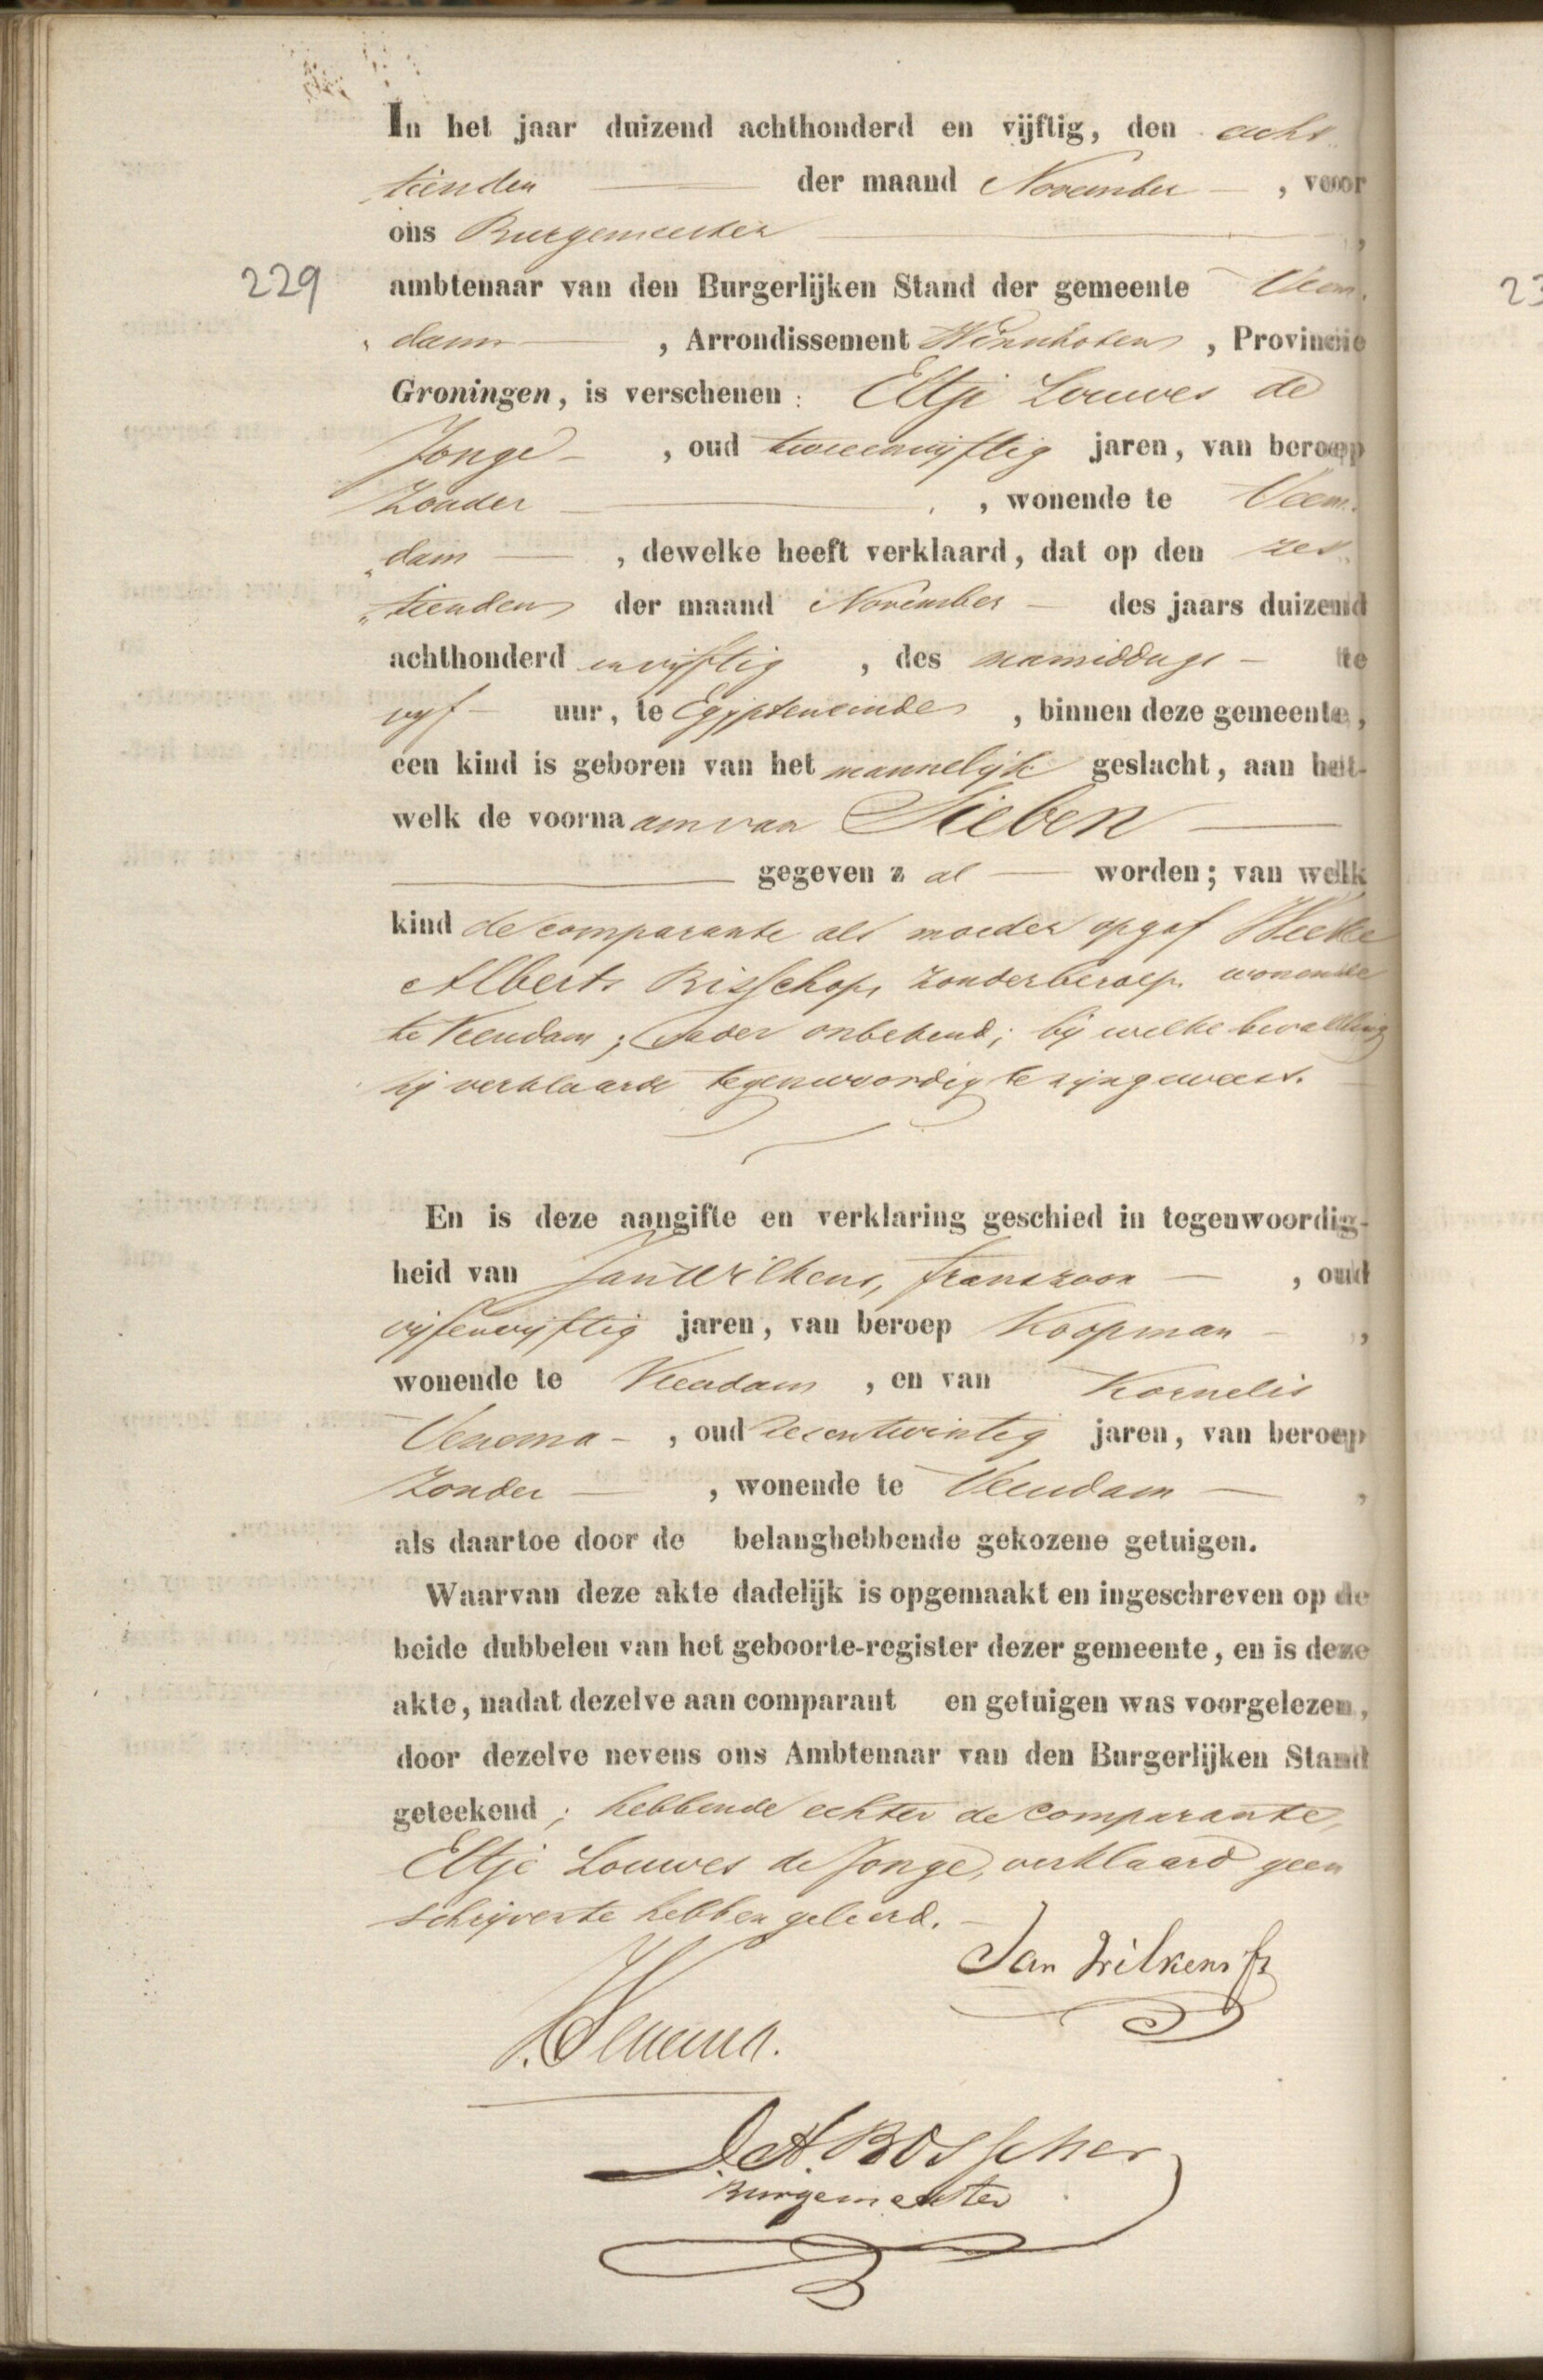 In het jaar duizend achthonderd en vijftig, den acht„
„tienden der maand November, voor
ons Burgemeester,
229 ambtenaar van den Burgerlijken Stand der gemeente Veen„
„dam, Arrondissement Winschoten, Provincie
Groningen, is verschenen: Eltje Louwes de
Jonge, oud tweeenvijftig jaren, van beroep
zonder, wonende te Veen„
„dam, dewelke heeft verklaard, dat op den zes„
„tienden der maand November des jaars duizend
achthonderd envijftig, des namiddags te
vijf uur, te Egypteneinde, binnen deze gemeente,
een kind is geboren van het mannelijk geslacht, aan het-
welk de voornaam van Sieben
gegeven zal worden; van welk
kind de comparante als moeder opgaf
Alberts Bisschop, zonder beroep, wonende
te Veendam; Vader onbekend; bij welke bevalling
zij verklaarde tegenwoordig te zijn geweest.
En is deze aangifte en verklaring geschied in tegenwoordig-
heid van Jan Wilkens, Franszoon, oud
vijfenvijftig jaren, van beroep Koopman,
wonende te Veendam, en van Kornelis
Venema, oud zesentwintig jaren, van beroep
zonder, wonende te Veendam,
als daartoe door de belanghebbende gekozene getuigen.
Waarvan deze akte dadelijk is opgemaakt en ingeschreven op de
beide dubbelen van het geboorte-register dezer gemeente, en is deze
akte, nadat dezelve aan comparant en getuigen was voorgelezen,
door dezelve nevens ons Ambtenaar van den Burgerlijken Stand
geteekend; hebbende echter de comparante,
Eltje Louwes de Jonge, verklaard geen
schrijven te hebben geleerd.
Jan Wilkens Fz
K. Venema.
D. A. Bosscher
Burgemeester
23